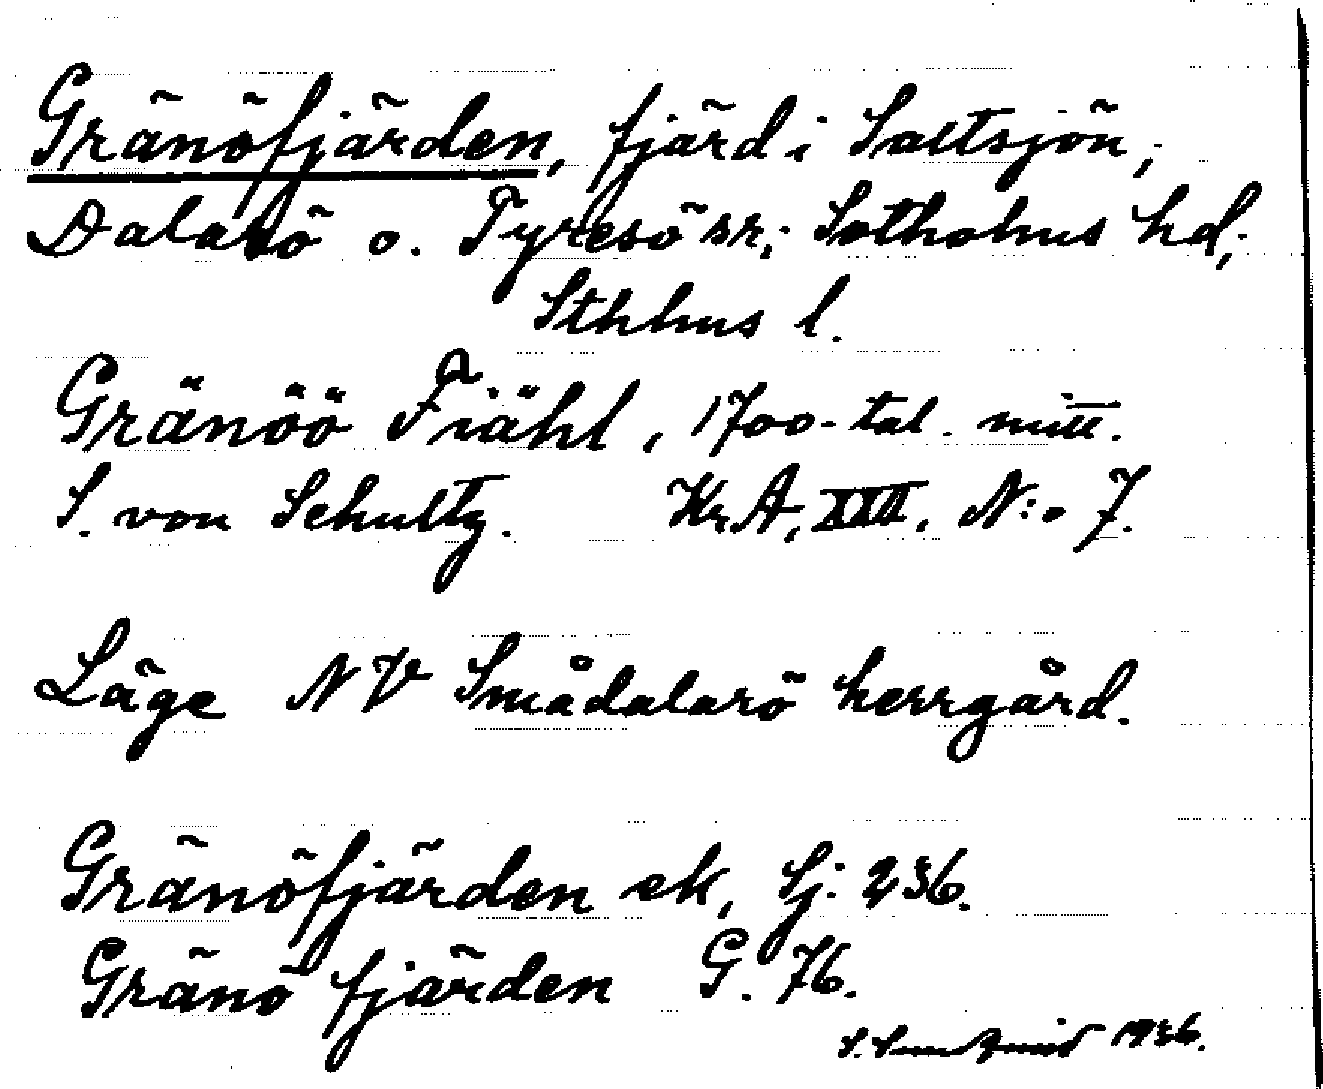 Gränöfjärden, fjärd i Saltsjön,
Dalarö o. Tyresö snr; Sotholms hd,
Sthlms l.
Gränöö Fiähl, 1700-tal. mitt.
S. von Schultz. Kr.A, XXII, N:o 7.
Läge NV Smådalarö herrgård.
Gränöfjärden ek, Sj: 236.
Gränö fjärden G. 76.
1936.